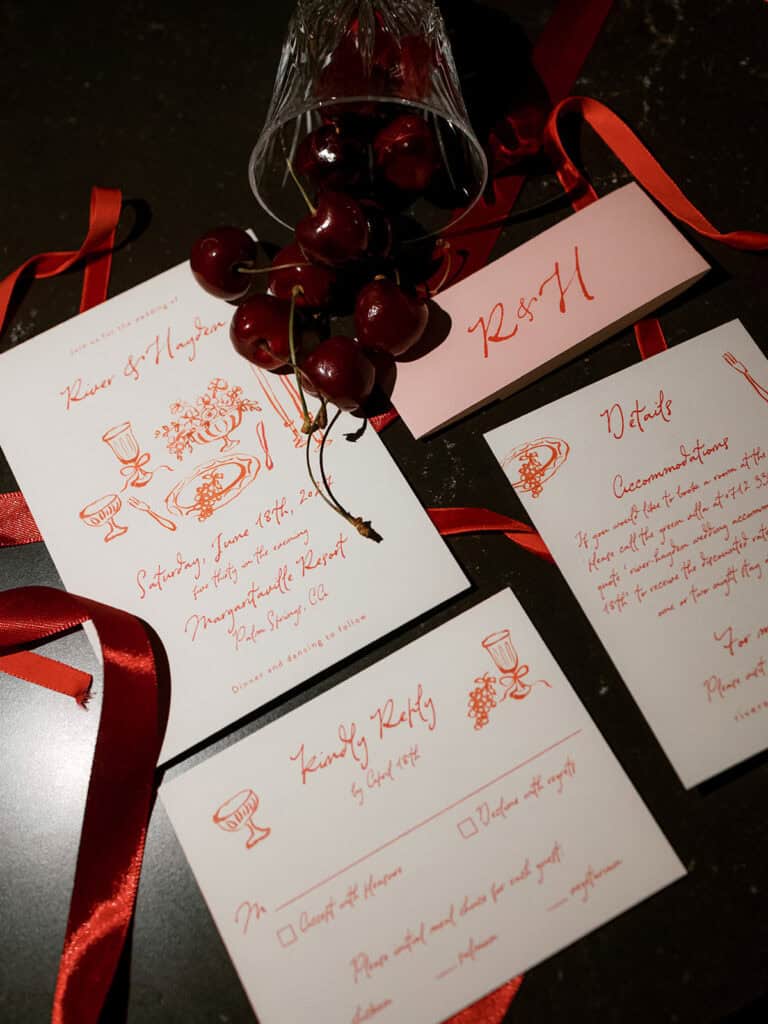 Join us for the wedding of
River & Hayden
Saturday, June 18th,
two thirty in the evening
Margaritaville Resort
Palm Springs, CA
Dinner and dancing to follow
R & H
Details
Accommodations
If you would like to book a room at the
Please call the green villa at
quote "river-hayden wedding
18th" to receive the discounted
one or two night stay
For
Please
Kindly Reply
by April 18th
M
Accept with Pleasure
Decline with regrets
Please initial meal choice for each guest:
salmon
vegetarian